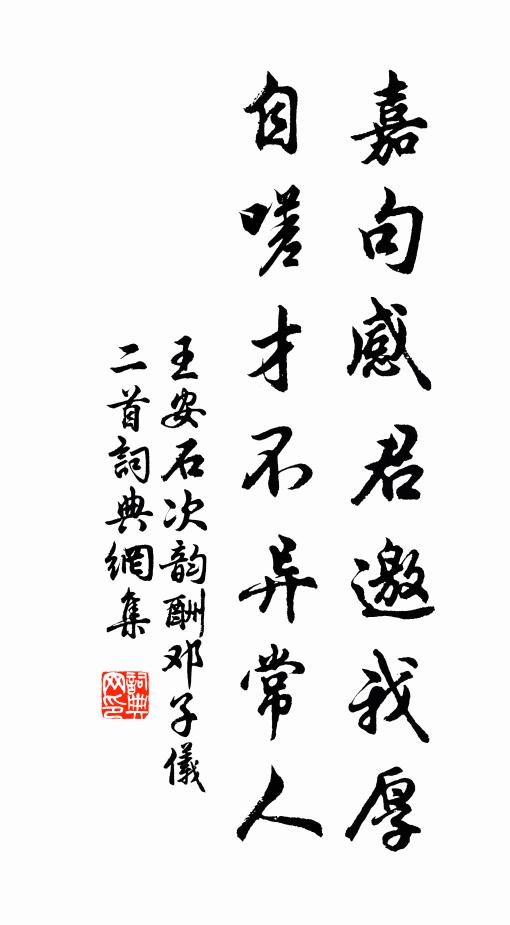 嘉句感君邀我厚
自嗟才不异常人
王安石次韵酬邓子儀
二首詞典網集
詞典网印